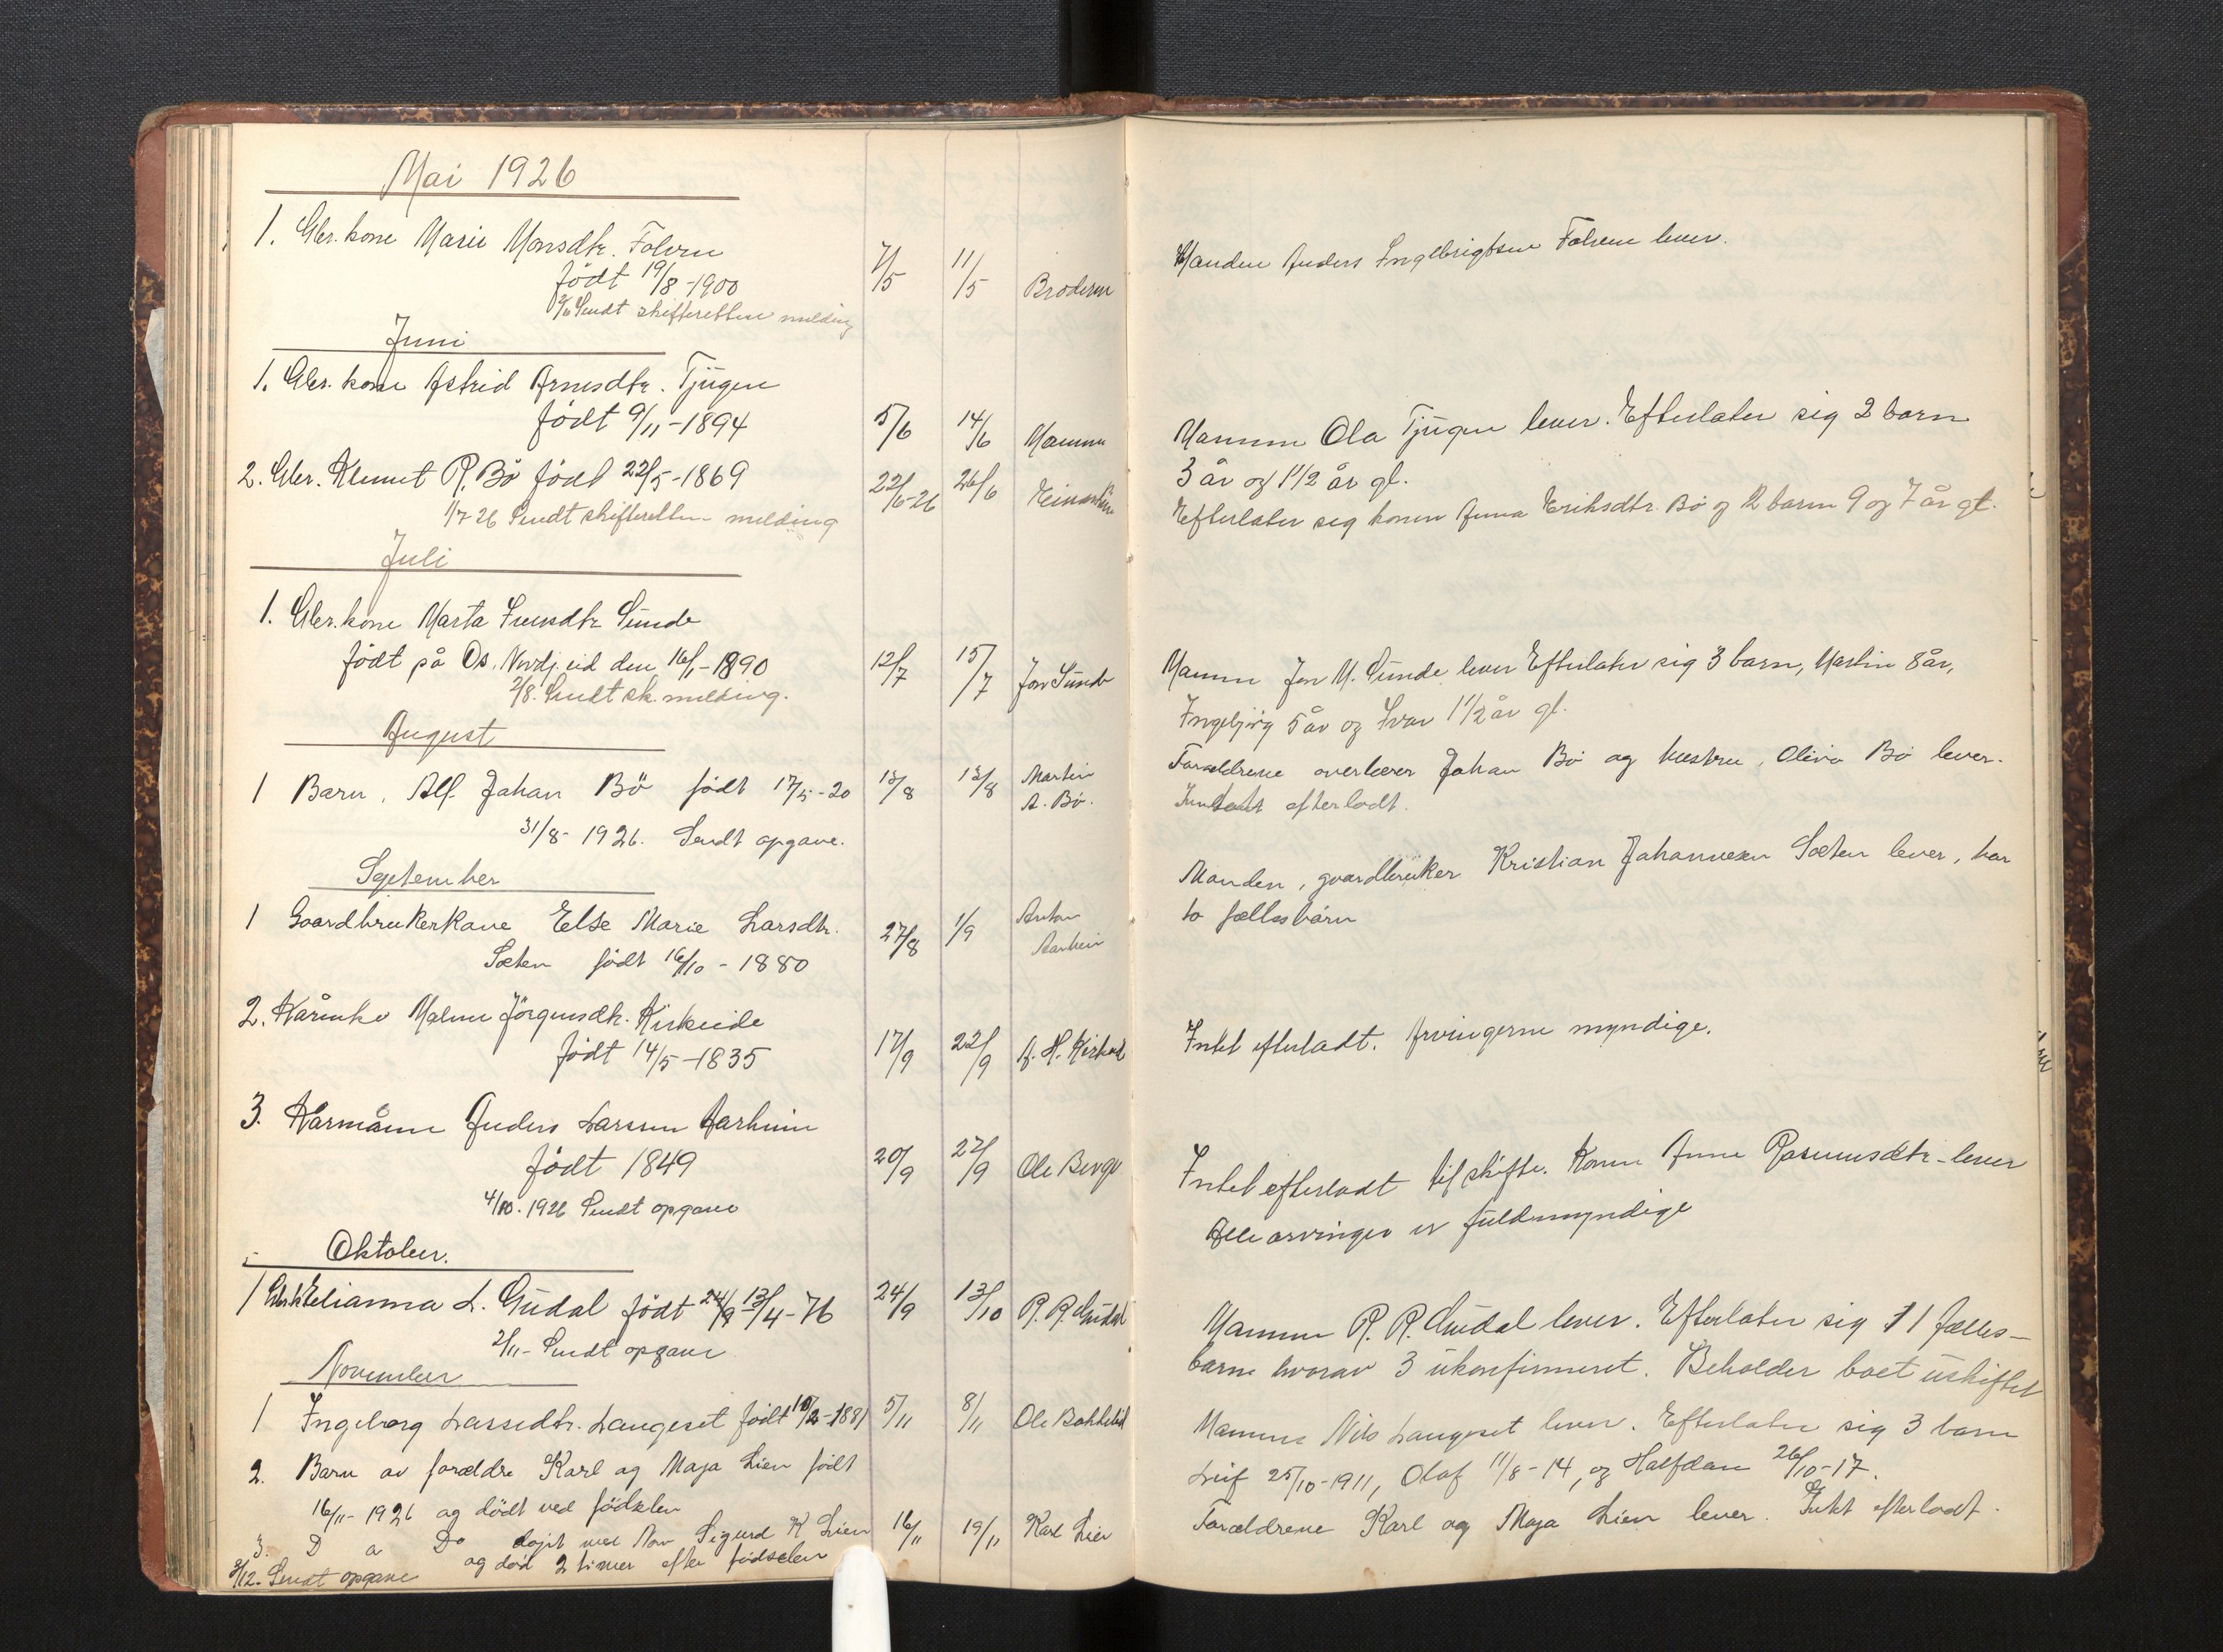 Mai 1926
1. Gbr. kone Marie Monsdtr. Folven
født 19/8-1900
7/5 11/5 Broderen
2/6 Sendt skifteretten melding
Juni
1. Gbr. kone Astrid Arnesdtr. Tjugen
født 9/11-1894
5/6 14/6 Mannen
2. Gbr. Klemet R. Bö födt 22/5-1869
22/6-26 26/6
1/7-26 Sendt skifteretten melding
Juli
1. Gbr. kone Marta Iversdtr Sunde
født på Os, Nordfj.eid den 16/1-1890
12/7 15/7 Jon Sunde
2/8. Sendt sk. melding.
August
1 Barn, Alf Johan Bö født 17/5-20
13/8 Martin A. Bö.
31/8-1926. Sendt opgave.
September
1 Gaardbrukerkone Else Marie Larsdtr.
Sæten født 16/10-1880
27/8 1/9 Anton Aarheim
2. Kårenke Malene Jörgensdtr. Kirkeide
født 14/5-1835
17/9 22/9 A. H. Kirkeid
3. Kårmånn Anders Larsen Aarheim
födt 1849
20/9 27/9 Ole Berge
4/10. 1926 Sendt opgave
Oktober.
1 Gbr.k Elianna L. Gudal født 24/9 13/4-76
24/9 13/10 R. R. Gudal
2/11- Sendt opgave
November
1 Ingeborg Lassedtr. Langeset födt 10/2-1881
5/11 8/11 Ole Bakkelid
2. Barn av forældre Karl og Maja Lien født
16/11-1926 og dödt ved födselen
3. D o Do døpt med Navn Sigurd K Lien
og død 2 timer efter fødselen
16/11 19/11 Karl Lien
2/12. Sendt opgave
Manden Anders Ingebrigtsen Folven lever.
Mannen Ola Tjugen lever. Efterlater sig 2 barn
3 år og 1 1/2 år gl.
Efterlater sig konen Anna Eriksdtr. Bö og 2 barn 9 og 7 år gl.
Mannen Jon M. Sunde lever Efterlater sig 3 barn, Martin 8 år,
Ingebjörg 5 år og Ivar 1 1/2 år gl.
Forældrene Johan Bö og hustru, Oliva Bö lever.
efterladt.
Manden, gaardbruker Kristian Johannesen Sæten lever, har
to fællesbarn
Intet efterladt. Arvingerne myndige.
Intet efterladt til skifte. Konen Anne Rasmusdtr- lever
Alle arvinger er fuldmyndige
Mannen R. R. Gudal lever. Efterlater sig 11 fælles-
barn hvorav 3 ukonfirmeret. Beholder boet uskiftet
Mannen Nils Langeset lever. Efterlater sig 3 barn
Leif 25/10-1911, Olaf 11/8-14, og Halfdan 26/10-17.
Forældrene Karl og Maja Lien lever. Intet efterladt.